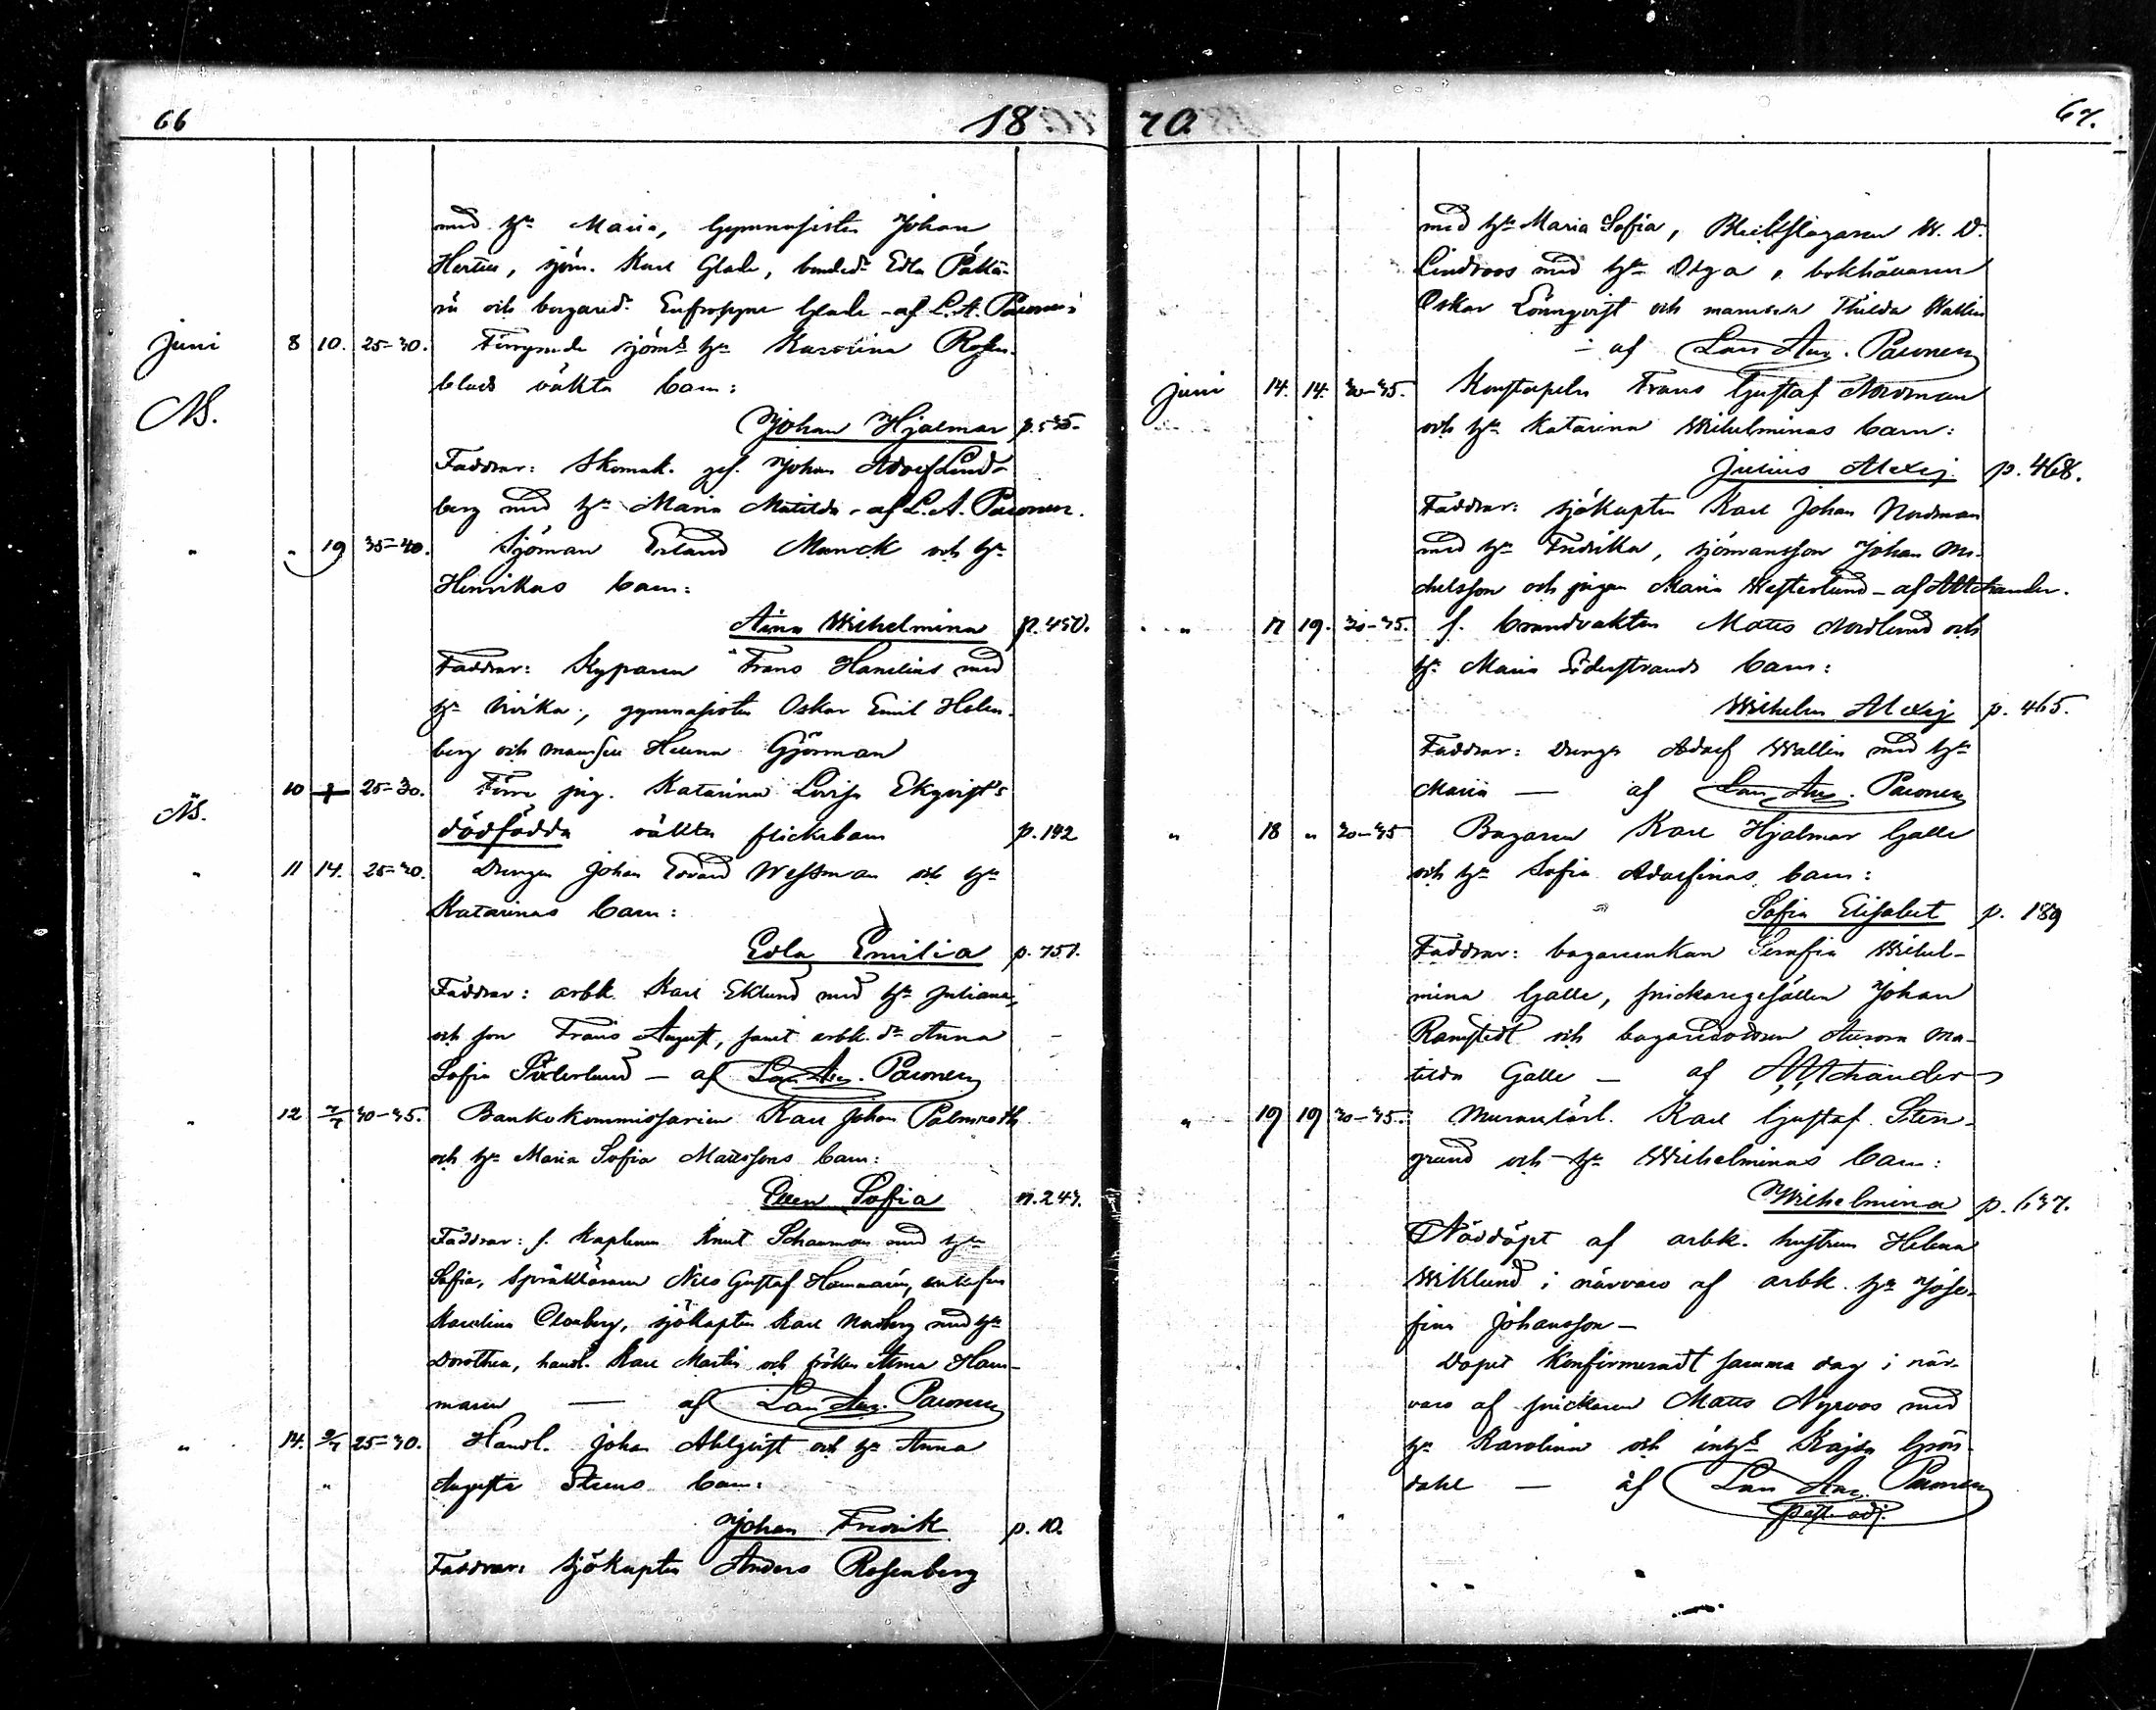 66
18
med hu Maria, Gymnasisten Johan
sjöm. Karl Glade, Edla
och bagared. Eufrosyne Glade - af L. A. Paconen
Juni 8 10. 25-30. Försprungne sjöm: hu Karolina Rosen-
blads oäkta barn:
NB.
Johan Hjalmar p. 535.
Faddrar: Skomak. ges. Johan Adolf Lind-
berg med hu Maria Matilda - af L. A. Paconen.
" " 19 35-40. Sjöman Erland Munck och hu
Henrikas barn:
Aina Wilhelmina p. 450.
Faddrar: Kyparen Frans Hanelius med
hu Ulrika, gymnasisten Oskar Emil Helen-
berg och mamsell Helena Gjörman
NB. 10 + 25-30. Förre pig. Katarina Lovisa Ekqvist's
dödfödda oäkta flickebarn p. 142
" 11 14. 25-30. Drengen Johan Edvard Wessman och hu
Katarinas barn:
Edla Emilia p. 751.
Faddrar: arbk. Karl Eklund med hu Juliana,
och son Frans August, samt arbk. dr Anna
Sofia Söderlund - af Lars Aug. Paconen
" 12 2/7 30-35. Bankokommissarien Karl Johan Palmroth
och hu Maria Sofia barn:
Ellen Sofia p. 243.
Faddrar: f. Kaplanen Knut Schauman med hu
Sofia, Språkläraren Nils Gustaf Hammarén, enkefru
Karolina Cloxberg, sjökapten Karl Norberg med hu
Dorothea, handl. Karl Martin och fröken Anna Ham-
maren — af Lars Aug. Paconen
" 14. 3/7 25-30. Handl. Johan Ahlqvist och hu Anna
" Augusta Stens barn:
Johan Fredrik p. 10.
Faddrar: Sjökapten Anders Rosenberg
70.
67.
med hu Maria Sofia, Bleckslagaren W. D.
Lindroos med hu Olga, bokhållaren
Oskar Lönnqvist och mamsell Thilda Wallin
- af Lars Aug. Paconen
Juni 14. 14. 30-35. Konstapeln Frans Gustaf Nordman
och hu Katarina Wilhelminas barn:
Julius Alexej p. 468.
Faddrar: sjökapten Karl Johan Nordman
med hu Fredrika, sjömansson Johan Mi-
chelsson och pigan Maria Westerlund - af
" 17 19. 30-35. f. brandvakten Matts Nordlund och
hu Maria Söderstrands barn:
Wilhelm Alexej p. 465.
Faddrar: Dreng Adolf Wallin med hu
Maria — af Lars Aug. Paconen
" 18 " 30-35 Bagaren Karl Hjalmar Galle
och hu Sofia Adolfinas barn:
Sofia Elisabet p. 189
Faddrar: bagareenkan Serafia Wilhel-
mina Galle, snickaregesällen Johan
Ramstedt och bagaredottren Aurora Ma-
tilda Galle — af
" 19 19 30-35. Murarelärl. Karl Gustaf Sten-
grund och hu Wilhelminas barn:
Wilhelmina p. 637.
Nöddöpt af arbk. hustrun Helena
Wiklund i närvaro af arbk. hu Jose-
fina Johansson —
Dopet konfirmeradt samma dag i när-
varo af snickaren Matts Nyroos med
hu Karolina och Kajsa Grön-
dahl — af Lars Aug. Paconen
past. adj.